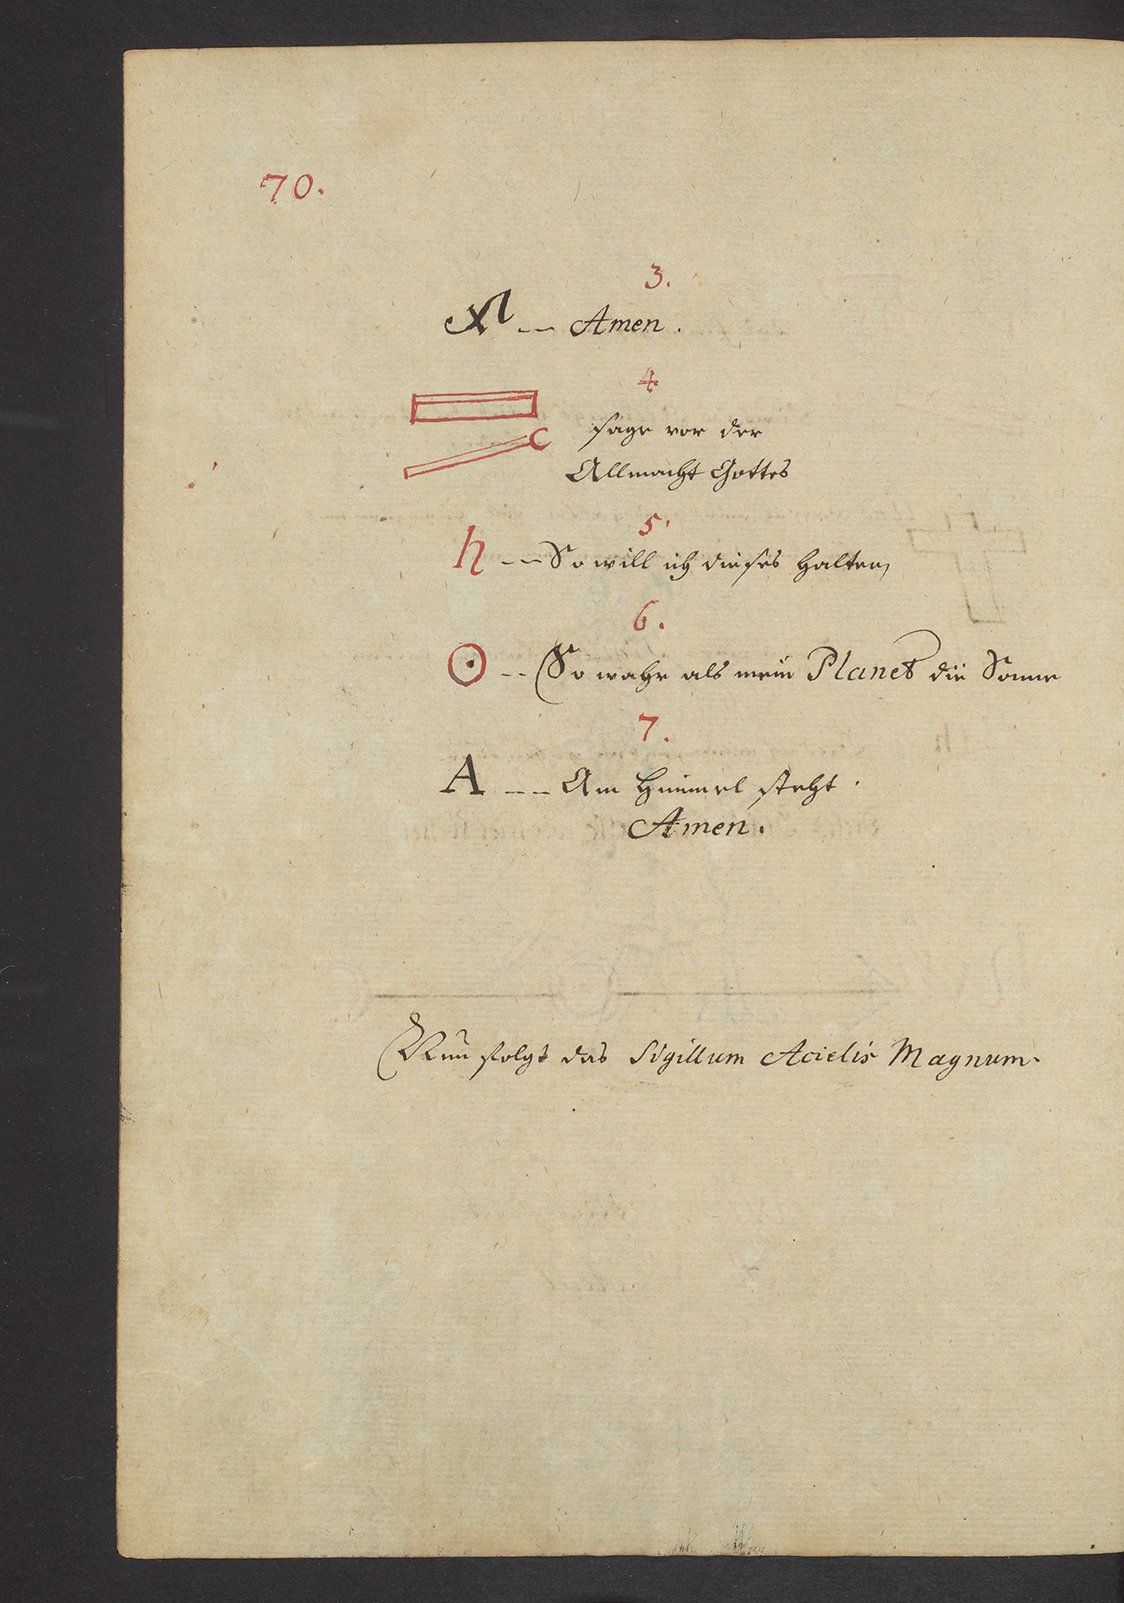 70.
3.
Amen.
4
sage vor der
Allmacht Gottes
5.
h -- So will ich dieses halten,
6.
☉ -- So wahr als mein Planet die Sonne
7.
A -- Am Himmel steht.
Amen.
Nun folgt das Sigillum Acielis Magnum.